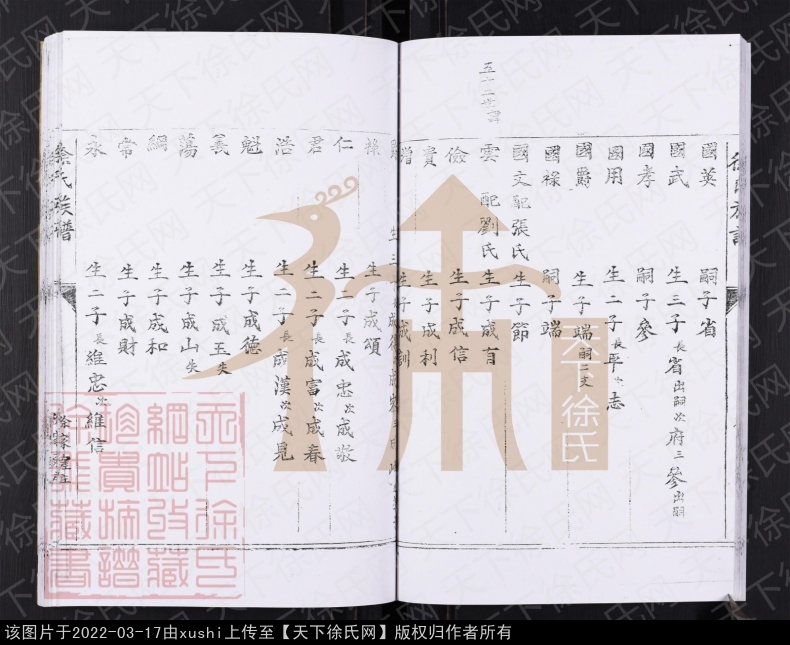 五十二世
國英 嗣子省
國武 生三子長省出嗣次府三參出嗣
國孝 嗣子參
國用 生二子長平次志
國爵 生子端嗣二支
國祿 嗣子端
國文配張氏 生子節
雲 配劉氏 生子成育
儉 生子成信
貴 生子成利
增 生子成訓
操 生子成頌
仁 生二子長成忠次成敬
君 生二子長成富次成春
浩 生二子長成漢次成見
魁 生子成德
義 生子成玉失
蕩 生子成山失
綱 生子成和
常 生子成財
永 生二子長維忠次維信
徐氏族譜
天下徐氏
天下徐氏
網站收藏
珍貴族譜
天下徐氏网
该图片于2022-03-17由xushi上传至【天下徐氏网】版权归作者所有